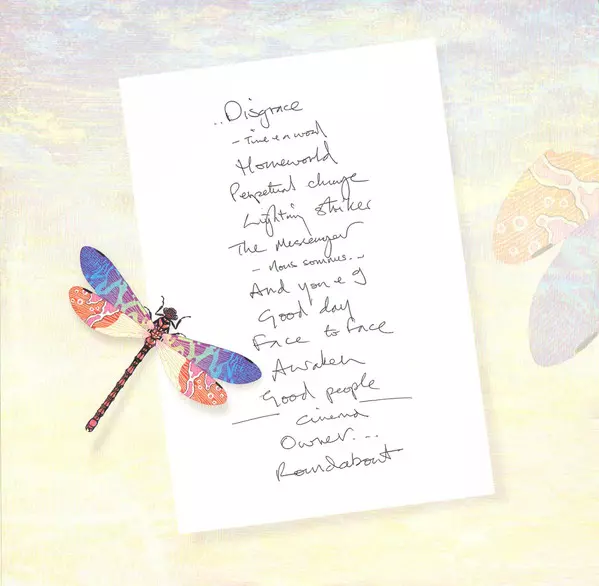 ..Disgrace
- Time & a word
Homeworld
Perpetual change
Lighting Striker
The Messenger
- Nous sommes. -
And you & I
Good day
Face to face
Awaken
Good people
Cinema
Owner...
Roundabout